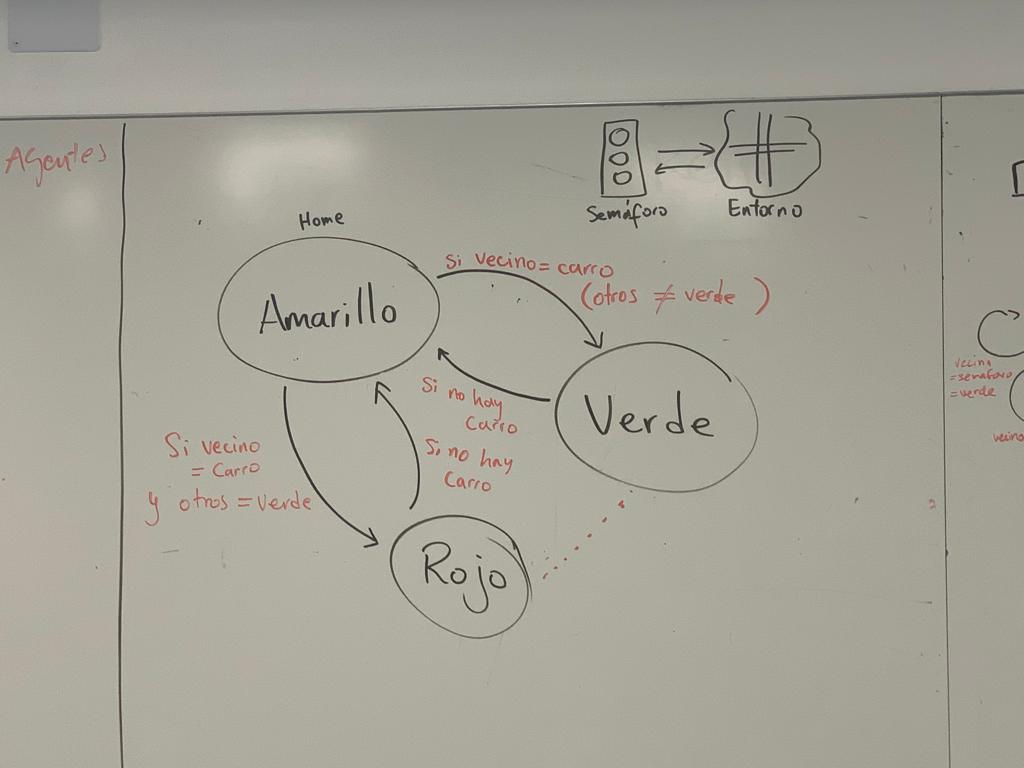 Agentes
Semáforo
Entorno
Home
Amarillo
Si vecino = carro
(otros ≠ verde )
Verde
Si no hay
Carro
Si no hay
Carro
Si vecino
= Carro
y otros = verde
Rojo
vecino
=semaforo
=verde
vecino